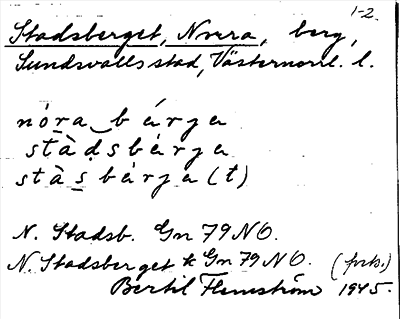 1-2.
Stadsberget, Norra, berg,
Sundsvalls stad, Västernorrl. l.
nó̱ra‿bárja
stàḍsbárja
stàs̱bárja(t)
N. Stadsb. Gn 79 NO.
N. Stadsberget k Gn 79 NO. (forts.)
Bertil Flemström 1945.